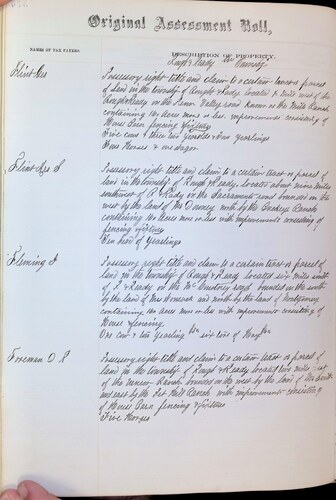 Original Assessment Roll,
NAMES OF TAX PAYERS.
DESCRIPTION OF PROPERTY.
Rough & Ready Township
Flint Geo
Possessory right title and claim to a certain tract or parcel
of land in the township of Rough & Ready located
Rough & Ready on the Penn Valley road known as the
containing 160 acres more or less improvements consisting of
House Barn fencing & fixtures
Five cows & three two year olds & two Yearlings
Two Horses & one Wagon
Flint Geo S
Possessory right title and claim to a certain tract or parcel of
land in the township of Rough & Ready located about miles
southwest of R Ready on the Sacramento road bounded on the
west by the land of Downey north by the Ranch
containing 160 acres more or less with improvements consisting of
fencing & fixtures
Ten head of Yearlings
Fleming J
Possessory right title and claim to a certain tract or parcel of
land in the township of Rough & Ready located six miles south
of R & Ready on the road bounded on the south
by the land of Mrs and north by the land of Montgomery
containing 160 acres more or less with improvements consisting of
House fencing
One cow & one Yearling six tons of Hay
Foreman D S
Possessory right title and claim to a certain tract or parcel of
land in the township of Rough & Ready located two miles
of the Ranch bounded on the west by the land of
and east by the Ranch with improvements consisting
of House Barn fencing & fixtures
Five Horses